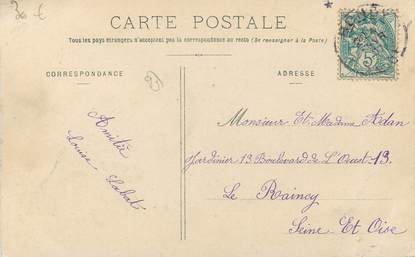 30 €
CARTE POSTALE
Tous les pays étrangers n'acceptent pas la correspondance au recto (Se renseigner à la Poste)
CORRESPONDANCE
ADRESSE
Amitié
Louise
Monsieur Et Madame Aedan
Jardinier 13 Boulevard de L'Ouest 13.
Le Raincy
Seine Et Oise